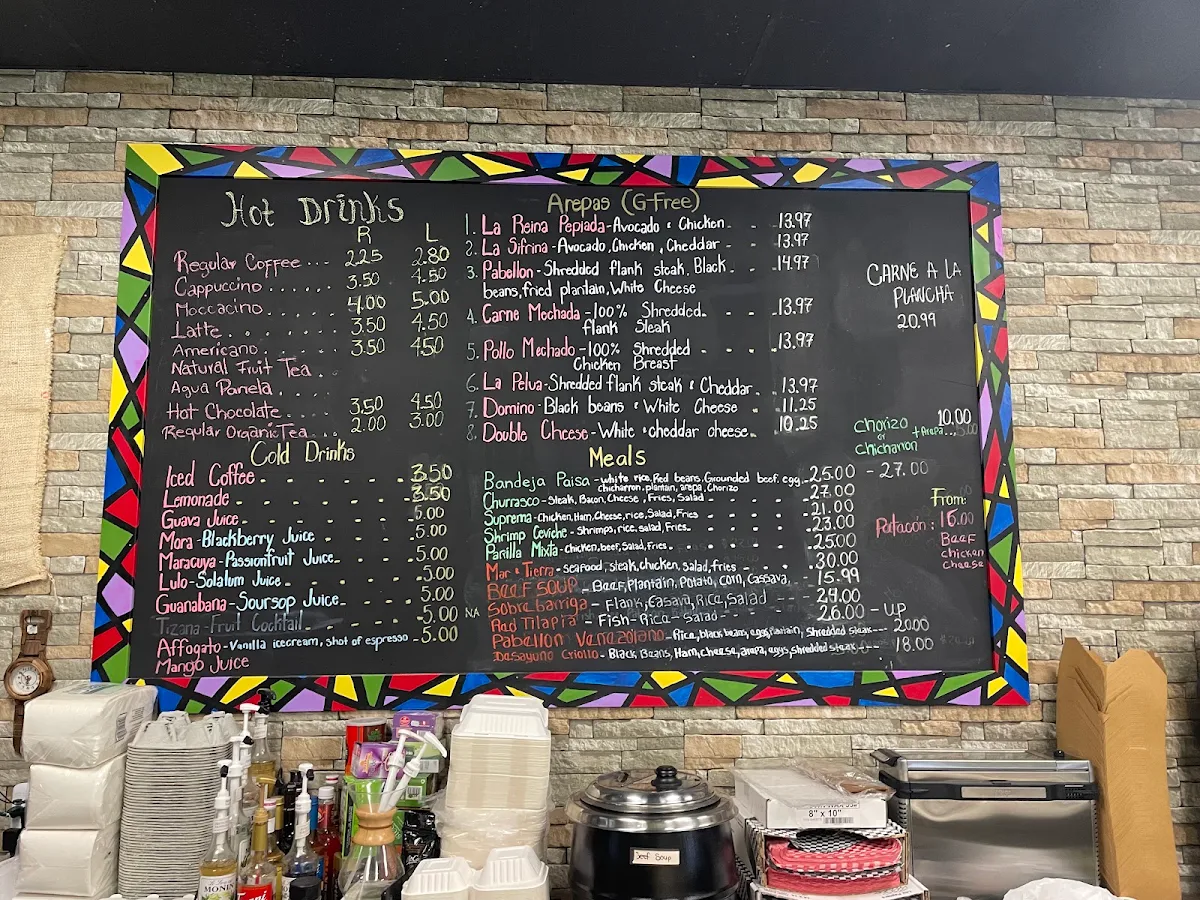 Hot Drinks
R L
Regular Coffee ... 2.25 2.80
Cappuccino ..... 3.50 4.50
Moccacino ...... 4.00 5.00
Latte ........ 3.50 4.50
Americano ...... 3.50 4.50
Natural Fruit Tea ..
Agua Panela ...
Hot Chocolate .... 3.50 4.50
Regular Organic Tea... 2.00 3.00
Cold Drinks
Iced Coffee - - - - - - 3.50
Lemonade - - - - - - - 3.50
Guava Juice - - - - - - 5.00
Mora - Blackberry Juice - - - - 5.00
Maracuya - Passionfruit Juice - - - 5.00
Lulo - Solalum Juice - - - - - 5.00
Guanabana - Soursop Juice - - - - 5.00
Tizana - Fruit Cocktail - - - - 5.00 NA
Affogato - Vanilla icecream, shot of espresso - 5.00
Mango Juice
Arepas (G-free)
1. La Reina Pepiada - Avocado & Chicken - - - 13.97
2. La Sifrina - Avocado, Chicken, Cheddar - - - 13.97
3. Pabellon - Shredded flank steak, Black - - - 14.97
beans, fried plantain, White Cheese
4. Carne Mechada - 100% Shredded - - - 13.97
flank Steak
5. Pollo Mechado - 100% Shredded - - - - 13.97
Chicken Breast
6. La Pelua - Shredded flank steak & Cheddar - - 13.97
7. Domino - Black beans & White Cheese - - 11.25
8. Double Cheese - White & cheddar cheese - - 10.25
CARNE A LA
PLANCHA
20.99
Chorizo
or
Chicharron
+ Arepa ...
10.00
Meals
Bandeja Paisa - white rice, Red beans, Grounded beef, egg, - 25.00 - 27.00
chicharron, plantain, arepa, Chorizo
Churrasco - Steak, Bacon, Cheese, Fries, Salad - - - 27.00
Suprema - Chicken, Ham, Cheese, rice, Salad, Fries - - - 21.00
Shrimp Ceviche - Shrimps, rice, salad, Fries - - - 23.00
Parilla Mixta - chicken, beef, Salad, Fries - - - 25.00
Mar & Tierra - seafood, steak, chicken, salad, fries - - - 30.00
BEEF SOUP - Beef, Plantain, Potato, Corn, Cassava, - - 15.99
Sobrebarriga - Flank, Casava, Rice, Salad 24.00
Red Tilapia - Fish - Rice - Salad - 26.00 - up
Pabellon Venezolano - Rice, black beans, eggs, plantain, Shredded steak --- 2.00
Desayuno Criollo - Black Beans, Ham, cheese, arepa, eggs, shredded steak --- 18.00
From:
Patacón: 16.00
Beef
chicken
cheese
8" x 10"
Beef Soup
MONIN